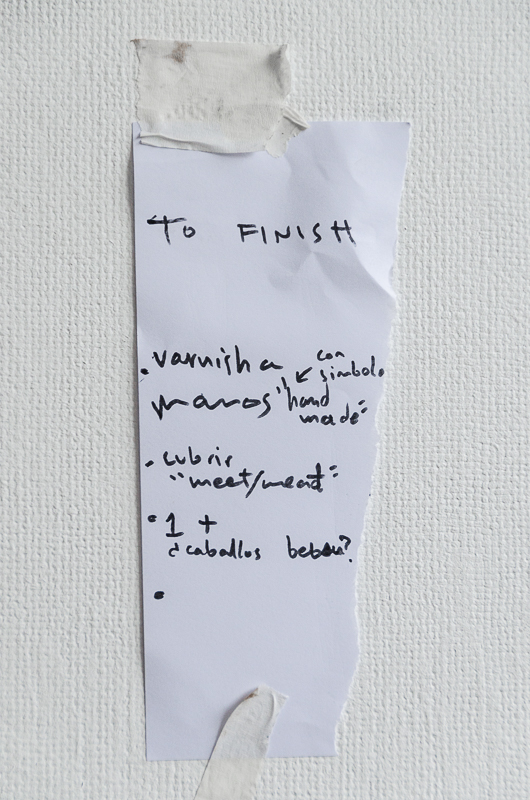 TO FINISH
• varnish a
con
simbolo
manos "hand
made"
• cubrir
"meet/meat"
• 1 +
¿caballos beben?
•